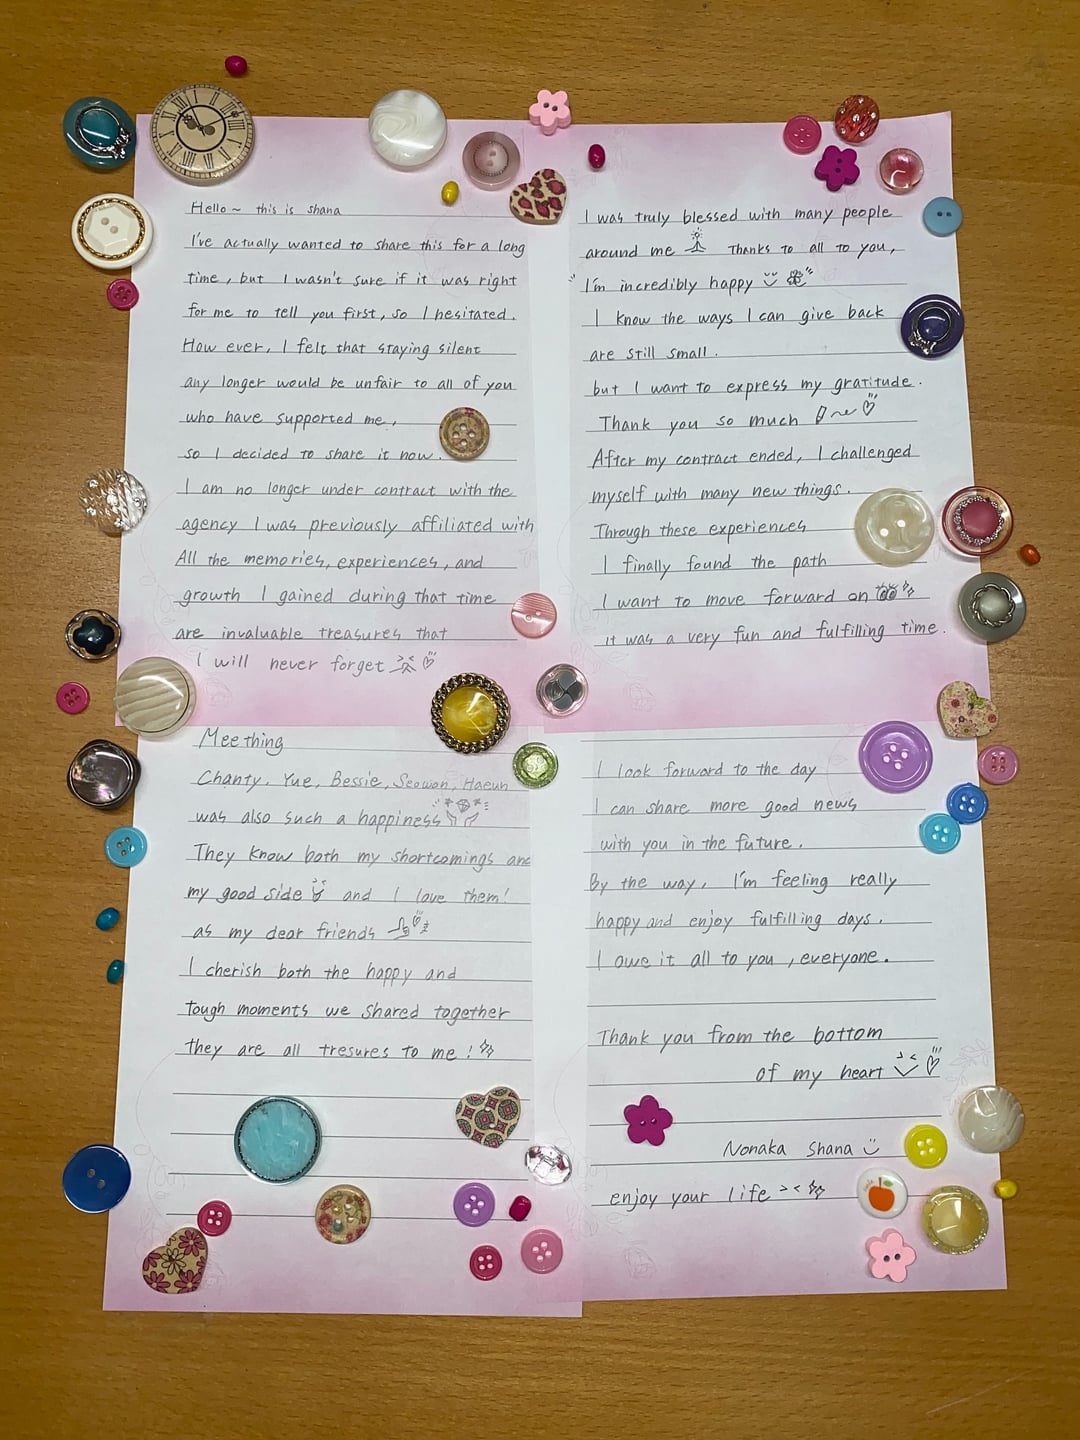 Hello~ this is shana
I've actually wanted to share this for a long
time, but I wasn't sure if it was right
for me to tell you first, so I hesitated.
How ever, I felt that staying silent
any longer would be unfair to all of you
who have supported me,
so I decided to share it now.
I am no longer under contract with the
agency I was previously affiliated with
All the memories, experiences, and
growth I gained during that time
are invaluable treasures that
I will never forget
I was truly blessed with many people
around me Thanks to all to you,
I'm incredibly happy
I know the ways I can give back
are still small.
but I want to express my gratitude.
Thank you so much
After my contract ended, I challenged
myself with many new things.
Through these experiences
I finally found the path
I want to move forward on
it was a very fun and fulfilling time.
Mee thing
Chanty, Yue, Bessie, Seowon, Haeun
was also such a happiness
They know both my shortcomings and
my good side and I love them!
as my dear friends
I cherish both the happy and
tough moments we shared together
they are all tresures to me!
I look forward to the day
I can share more good news
with you in the future.
By the way, I'm feeling really
happy and enjoy fulfilling days.
I owe it all to you, everyone.
Thank you from the bottom
of my heart
Nonaka Shana
enjoy your life